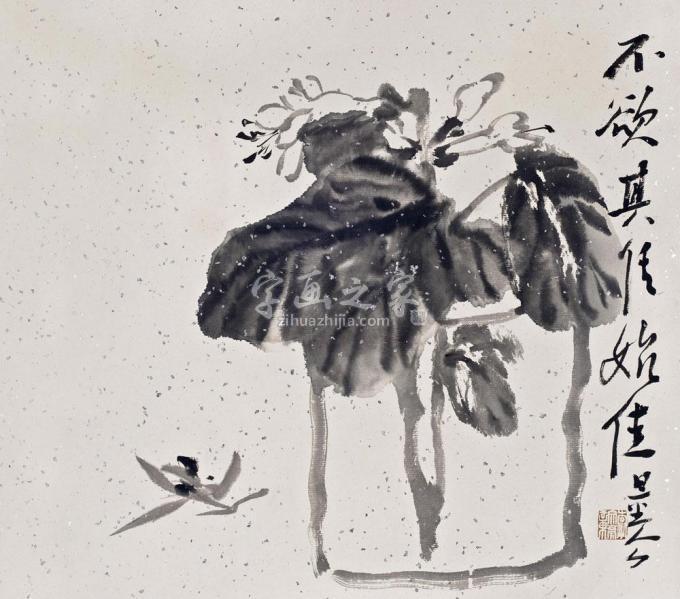 不欲其佳始佳
字画之家
zihuazhijia.com